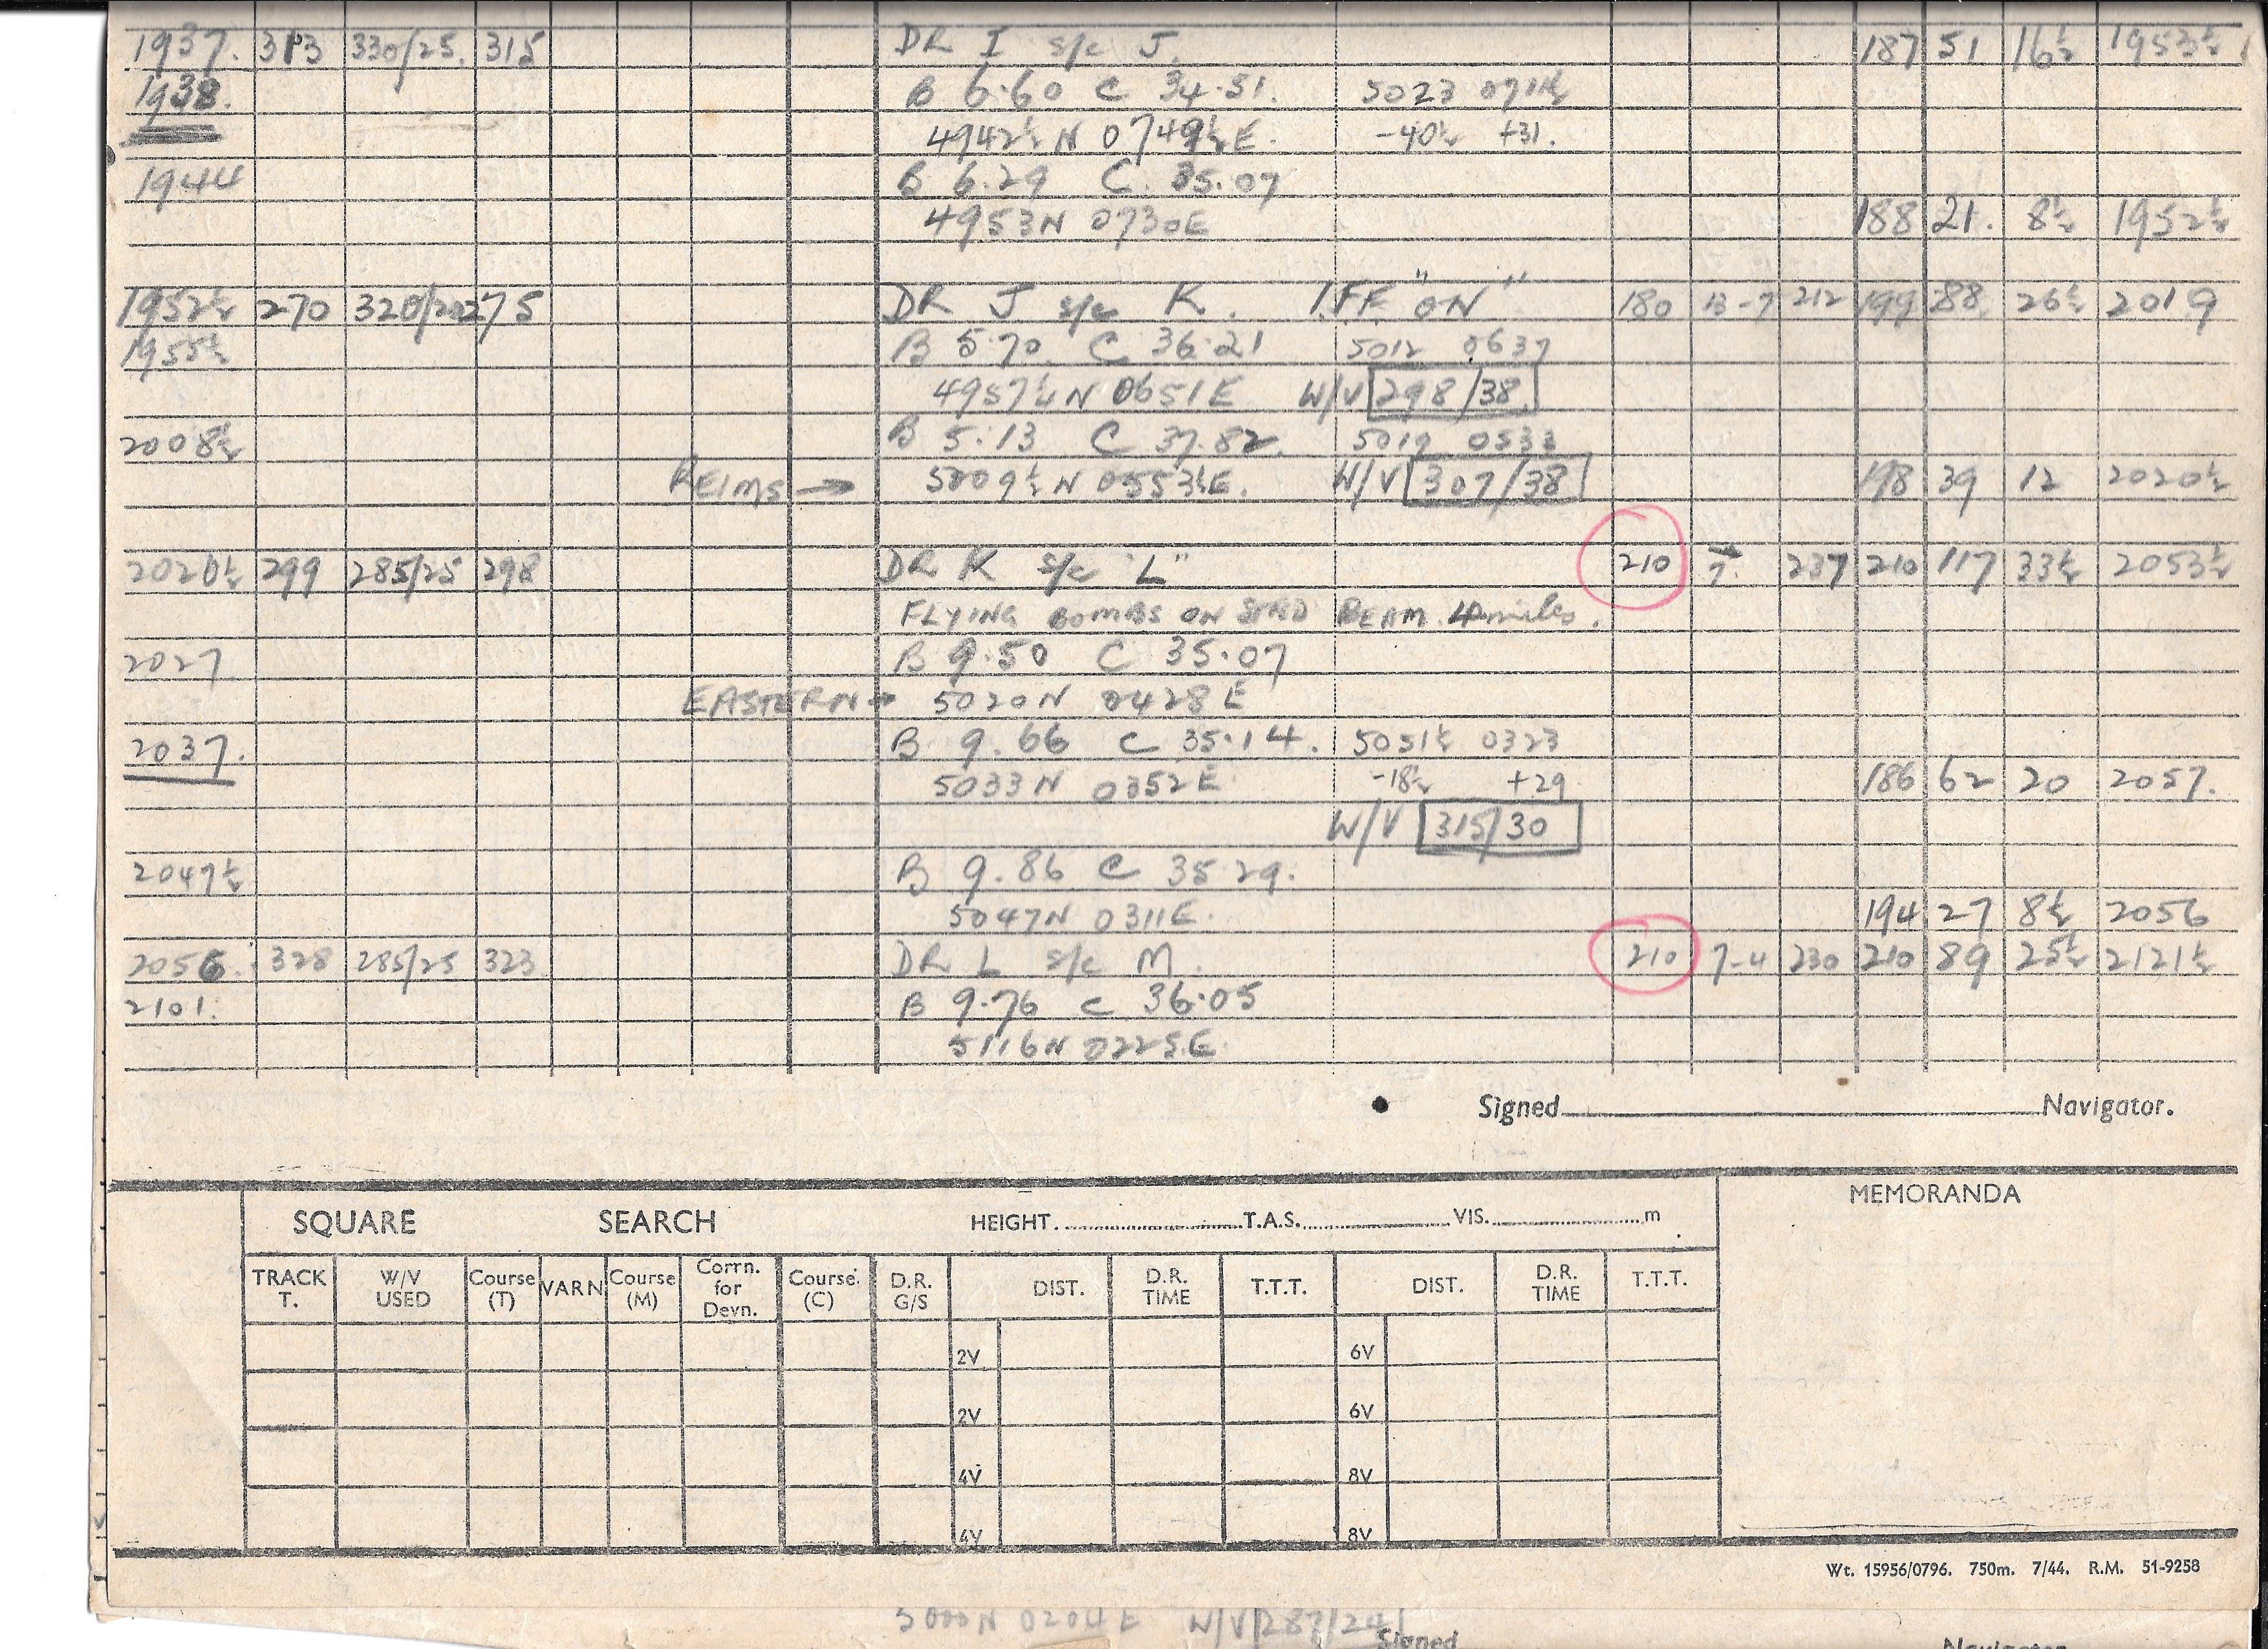 1937. 313 330/25. 315 DR I s/c J. 187 51 16½ 1953½
1938. B 6.60 C 34.51. 5023 0718½
4942½N 0749½E. -40½ +31.
1944 B 6.29 C. 35.07
4953N 0730E 188 21. 8½ 1952½
1952½ 270 320/20 275 DR J s/c K. I.F.F. "ON" 180 13-7 212 199 88 26½ 2019
1955½ B 5.70 C 36.21 5012 0637
4957½N 0651E W/V 298/38.
2008½ B 5.13 C 37.82. 5019 0533
REIMS → 5009½N 0553½E. W/V 307/38 198 39 12 2020½
2020½ 299 285/25 298 DR K s/c "L" 210 7. 237 210 117 33½ 2053½
FLYING BOMBS ON STBD BEAM. 4 miles.
2027 B 9.50 C 35.07
EASTERN → 5020N 0428E
2037. B 9.66 C 35.14. 5051½ 0323
5033N 0352E -18½ +29 186 62 20 2057.
W/V 315/30
2047½ B 9.86 C 35.29.
5047N 0311E. 194 27 8½ 2056
2056. 328 285/25 323 DR L s/c M. 210 7-4 230 210 89 25½ 2121½
2101. B 9.76 C 36.05
5116N 0225E.
Signed Navigator.
SQUARE SEARCH HEIGHT. T.A.S. VIS. m MEMORANDA
TRACK T. W/V USED Course (T) VARN Course (M) Corrn. for Devn. Course. (C) D.R. G/S DIST. D.R. TIME T.T.T. DIST. D.R. TIME T.T.T.
2V 6V
2V 6V
4V 8V
4V 8V
Wt. 15956/0796. 750m. 7/44. R.M. 51-9258
5000N 0204E W/V 287/24
Signed Navigator